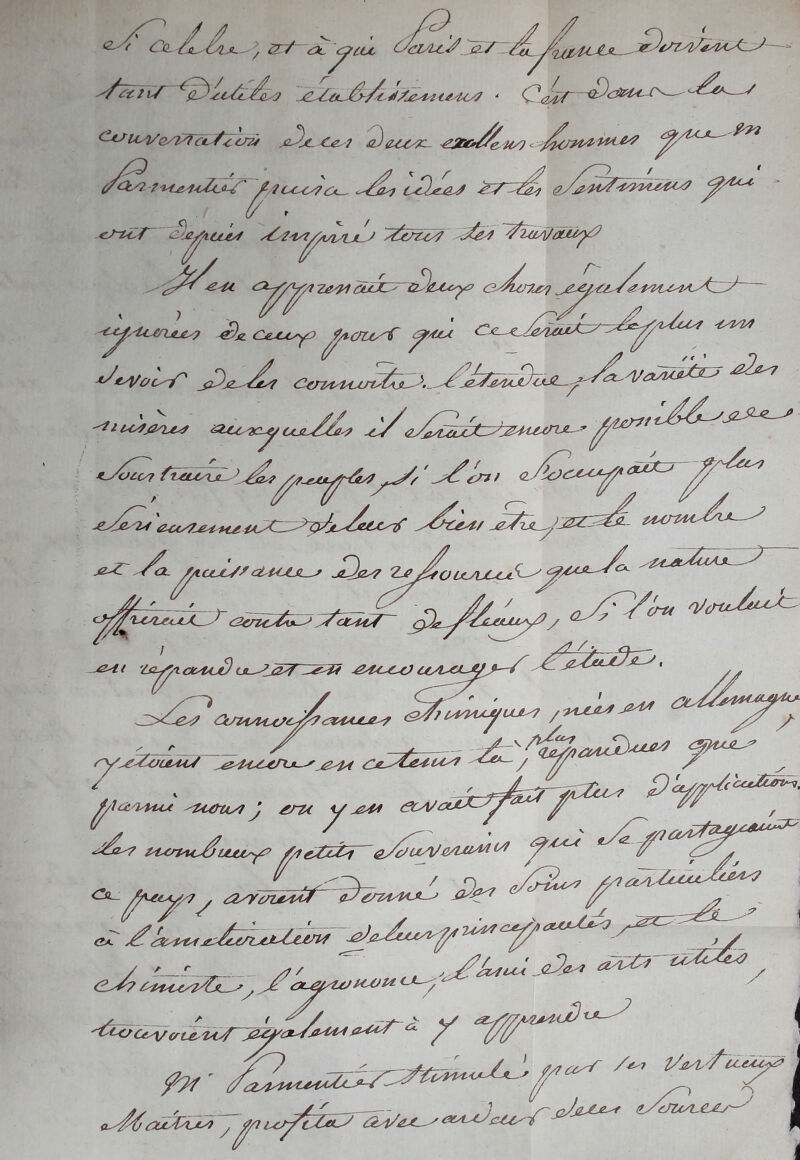 si celebre, et à qui Paris et la france doivent
tant d'utiles établissemens. C'est dans la
conversation de ces deux excellens hommes que M
Parmentier puisa les idées et les sentimens qui
ont depuis inspiré tous ses travaux
Il en apprenait deux choses également
ignorées de ceux pour qui ce serait le plus un
devoir de les connoitre: l'étendue, la variété des
misères auxquelles il serait encore possible de
soustraire les peuples, si l'on s'occupait plus
sérieusement de leur bien être, et le nombre
et la puissance des ressources que la nature
offrirait contre tant de fléaux, si l'on voulait
en répandre et en encourager l'étude.
Les connoissances chimiques, nées en allemagne
y étoient encore en ce tems là, plus répandues que
parmi nous; on y en avait fait plus d'applications.
les nombreux petits souverains qui se partageaient
ce pays, avoient donné des soins particuliers
à l'amélioration de leurs principautés, et le
chimiste, l'agronome, l'ami des arts utiles,
trouvoient également à y apprendre
Mr Parmentier stimulé par ses vertueux
Maitres, profita avec ardeur de ces sources